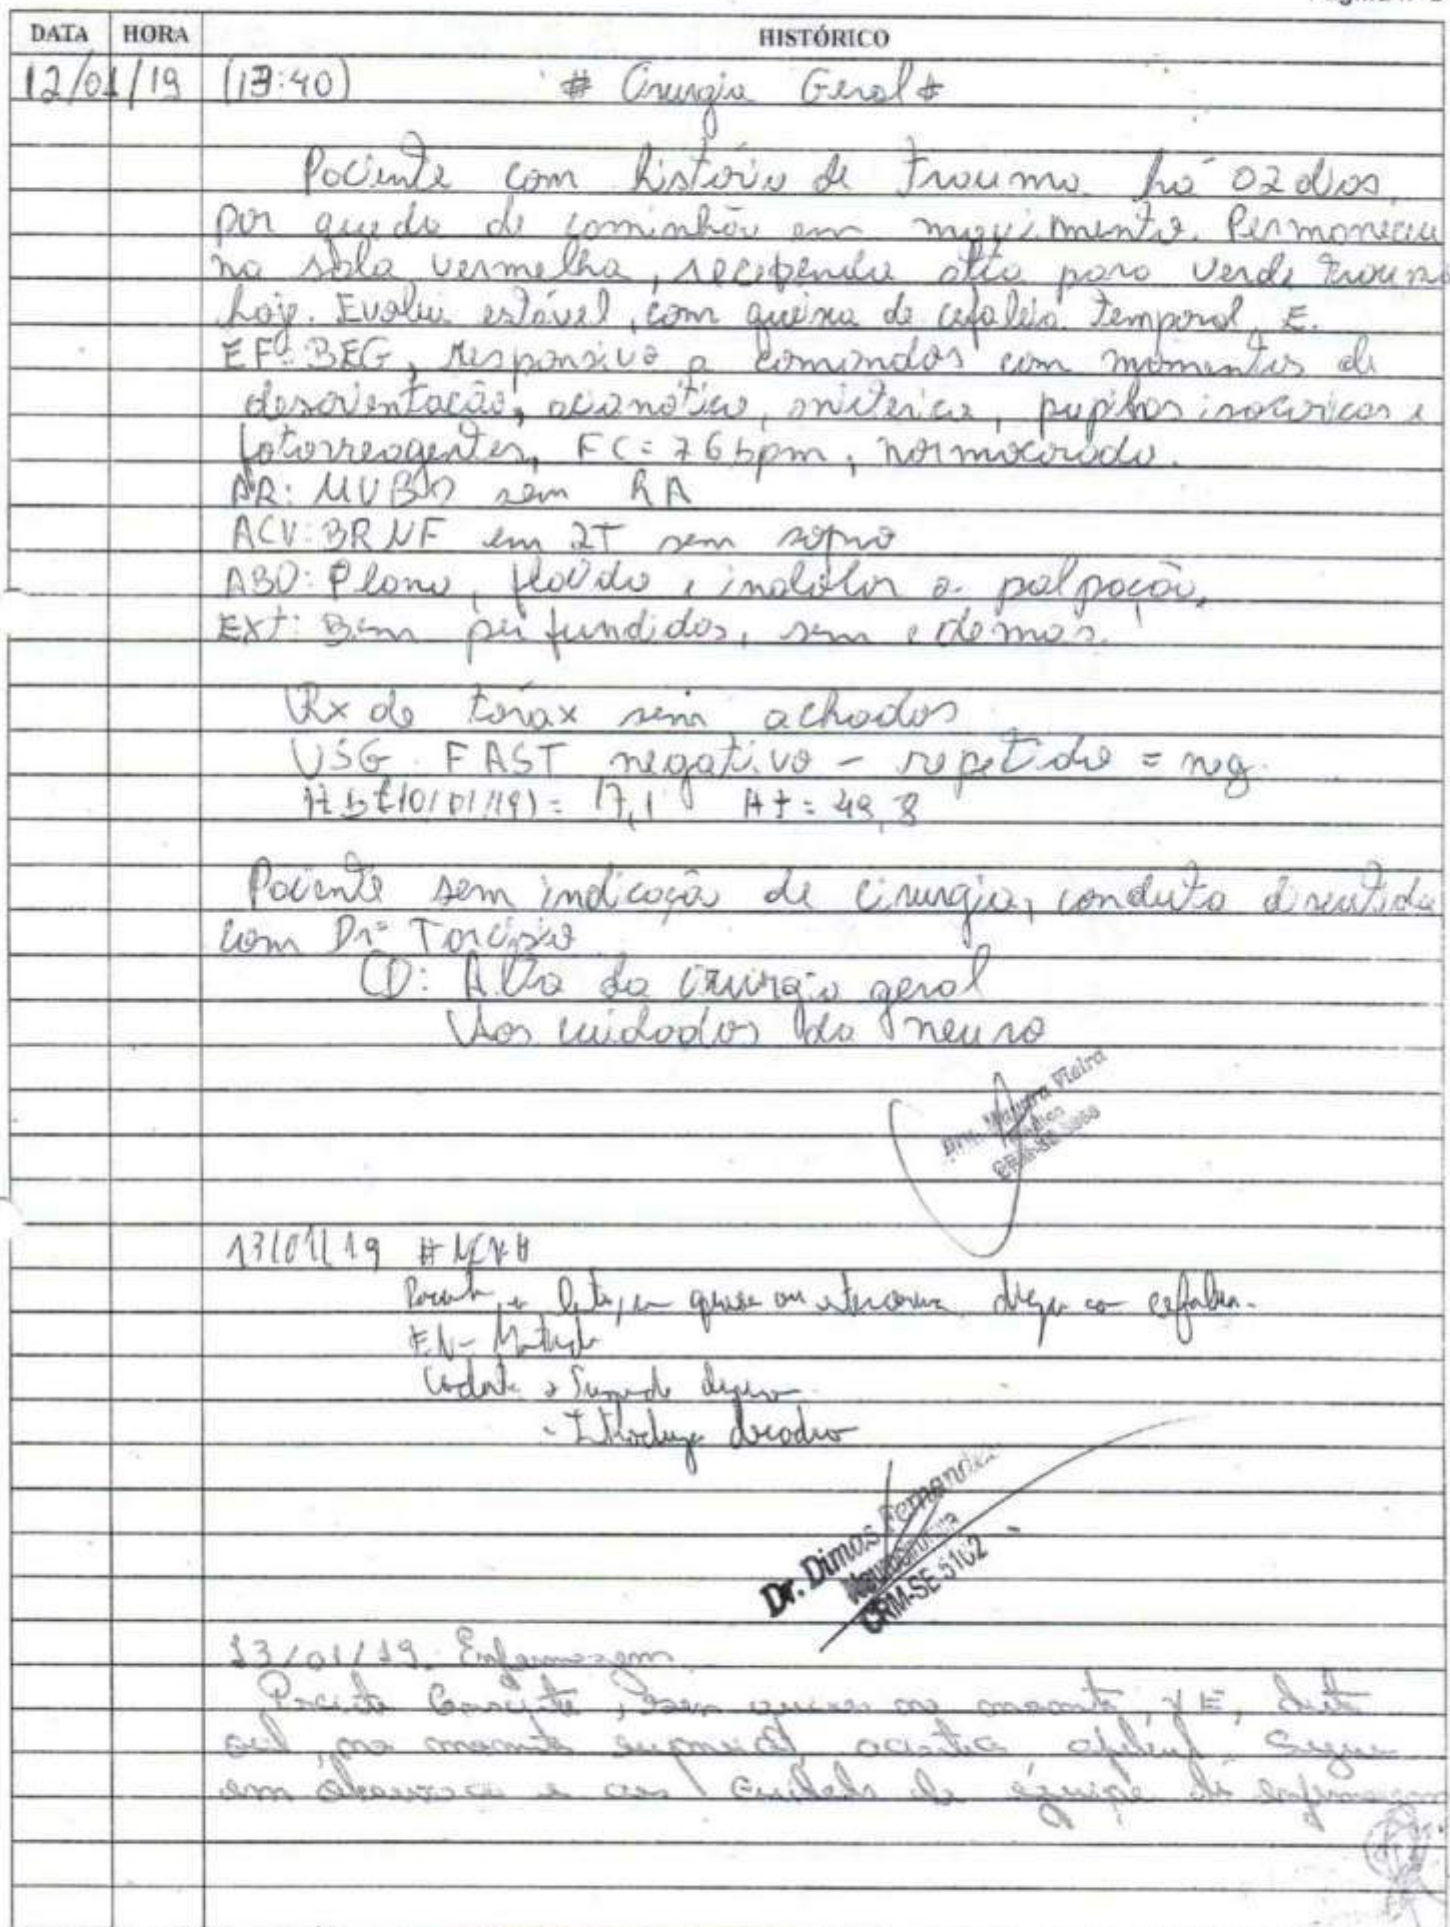 DATA HORA HISTÓRICO
12/01/19 (13:40) # Cirurgia Geral #
Paciente com história de trauma há 02 dias
por queda de caminhão em movimento. Permaneceu
na sala vermelha, recebendo alta para verde trauma
hoje. Evolui estável, com queixa de cefaleia temporal E.
EF: BEG, responsivo a comandos com momentos de
desorientação, acianótico, anictérico, pupilas isocóricas e
fotorreagentes, FC = 76 bpm, normocorado.
AR: MVBD sem RA
ACV: BRNF em 2T sem sopro
ABD: Plano, flácido e indolor a palpação.
Ext: Bem perfundidos, sem edemas.
Rx de tórax sem achados
USG FAST negativo - repetido = neg.
Hb (10/01/19) = 17,1 Ht = 49,8
Paciente sem indicação de cirurgia, conduta discutida
com Drº Torcisio
CD: Alta da cirurgia geral
Aos cuidados da neuro
Vieira
13/01/19 # NCR #
cefaleia.
Dr. Dimas Fernandes
Neurocirurgia
CRM-SE 5102
13/01/19 Enfermagem
Paciente Consciente, sem queixas no momento,
no momento Segue
em observação e aos cuidados da équipe de enfermagem